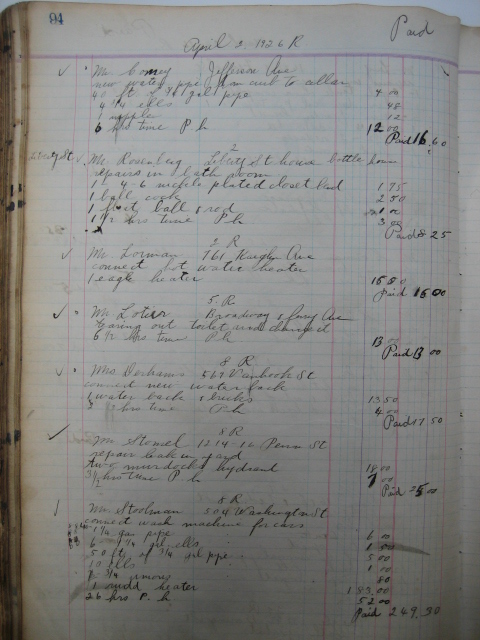 94
Paid
April 2, 1926 R
Mr. Comey Jefferson Ave
new water pipe from curb to cellar
40 ft of 3/4 gel pipe 4 00
4 3/4 ells 48
1 nipple 12
6 hrs time P h 12 00
Paid 16.60
2
Liberty St Mr. Rosenberg Liberty St house bottle
repairs in bath room
1 - 4-6 nickle plated closet 1.75
1 ball cock 2 50
1 float ball & rod 1 00
1 1/2 hrs time P h 3 00
Paid 8 25
2 R
Mr. Lorman 961 Ave
connect hot water heater
1 eagle heater 16 00
Paid 16 00
5. R
Mr. Broadway & Ave
tearing out toilet and changed
6 1/2 hrs time P h 13 00
Paid 13 00
8 R
Mrs. 567 St
connect new water back
1 water back & bricks 13 50
hrs time P h 4 00
Paid 17 50
8 R
Mr. Stomel 1214-16 Penn St
repair leak in yard
two murdocks hydrant 18 00
3 1/2 hrs time P h 7 00
Paid 25 00
8 R
Mr. Stoolman 504 Washington St
connect wash machine for cars
1 1/4 gas pipe 6 00
6 gel ells 1 50
50 ft of 3/4 gel pipe 5 00
10 ells 1 00
3/4 unions 80
1 rudd heater 183.00
26 hrs P. h 52 00
Paid 249.30